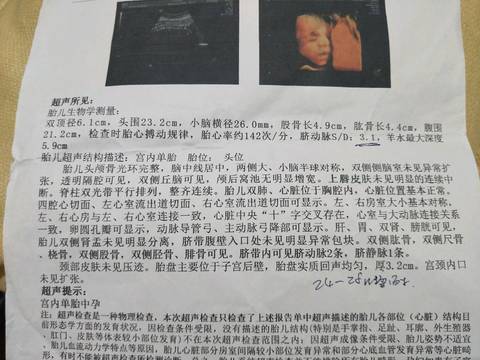 超声所见:
胎儿生物学测量:
双顶径6.1cm, 头围23.2cm, 小脑横径26.0mm, 股骨长4.9cm, 肱骨长4.4cm, 腹围
21.2cm, 检查时胎心搏动规律, 胎心率约142次/分, 脐动脉S/D: 3.1, 羊水最大深度
5.9cm
胎儿超声结构描述: 宫内单胎 胎位: 头位
胎儿头颅骨光环完整, 脑中线居中, 两侧大、小脑半球对称, 双侧侧脑室未见异常扩
张, 透明隔腔可见, 双侧丘脑可见, 颅后窝池无明显增宽。上唇皮肤未见明显的连续中
断。脊柱双光带平行排列, 整齐连续。胎儿双肺、心脏位于胸腔内, 心脏位置基本正常。
四腔心切面、左心室流出道切面、右心室流出道切面可显示。左、右房室大小基本对称,
左、右心房与左、右心室连接一致, 心脏中央“十”字交叉存在, 心室与大动脉连接关系
一致, 卵圆孔瓣可显示, 动脉导管弓、主动脉弓降部可显示。肝、胃、双肾、膀胱可见,
胎儿双侧肾盂未见明显分离, 脐带腹壁入口处未见明显异常包块。双侧肱骨, 双侧尺骨
、桡骨, 双侧股骨, 双侧胫骨、腓骨可见。脐带内可见脐动脉2条, 脐静脉1条。
颈部皮肤未见压迹。胎盘主要位于子宫后壁, 胎盘实质回声均匀, 厚3.2cm。宫颈内口
未见扩张。
超声提示:
宫内单胎中孕
注: 超声检查是一种物理检查, 本次超声检查只检查了上述报告单中超声描述的胎儿各部位(心脏)结构目
前形态学方面的发育状况, 因检查条件受限, 没有描述的胎儿结构(特别是手掌指、足趾、耳廓、外生殖器
、肛门、皮肤等体表较小部位发育)不在本次超声检查范围之内; 因超声成像条件受限、胎儿姿势不适宜